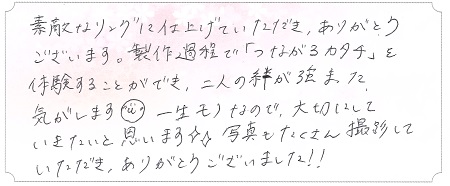 素敵なリングに仕上げていただき、ありがとう
ございます。製作過程で「つながるカタチ」を
体験することができ、二人の絆が強まった
気がします 一生モノなので、大切にして
いきたいと思います☆☆ 写真もたくさん撮影して
いただき、ありがとうございました!!